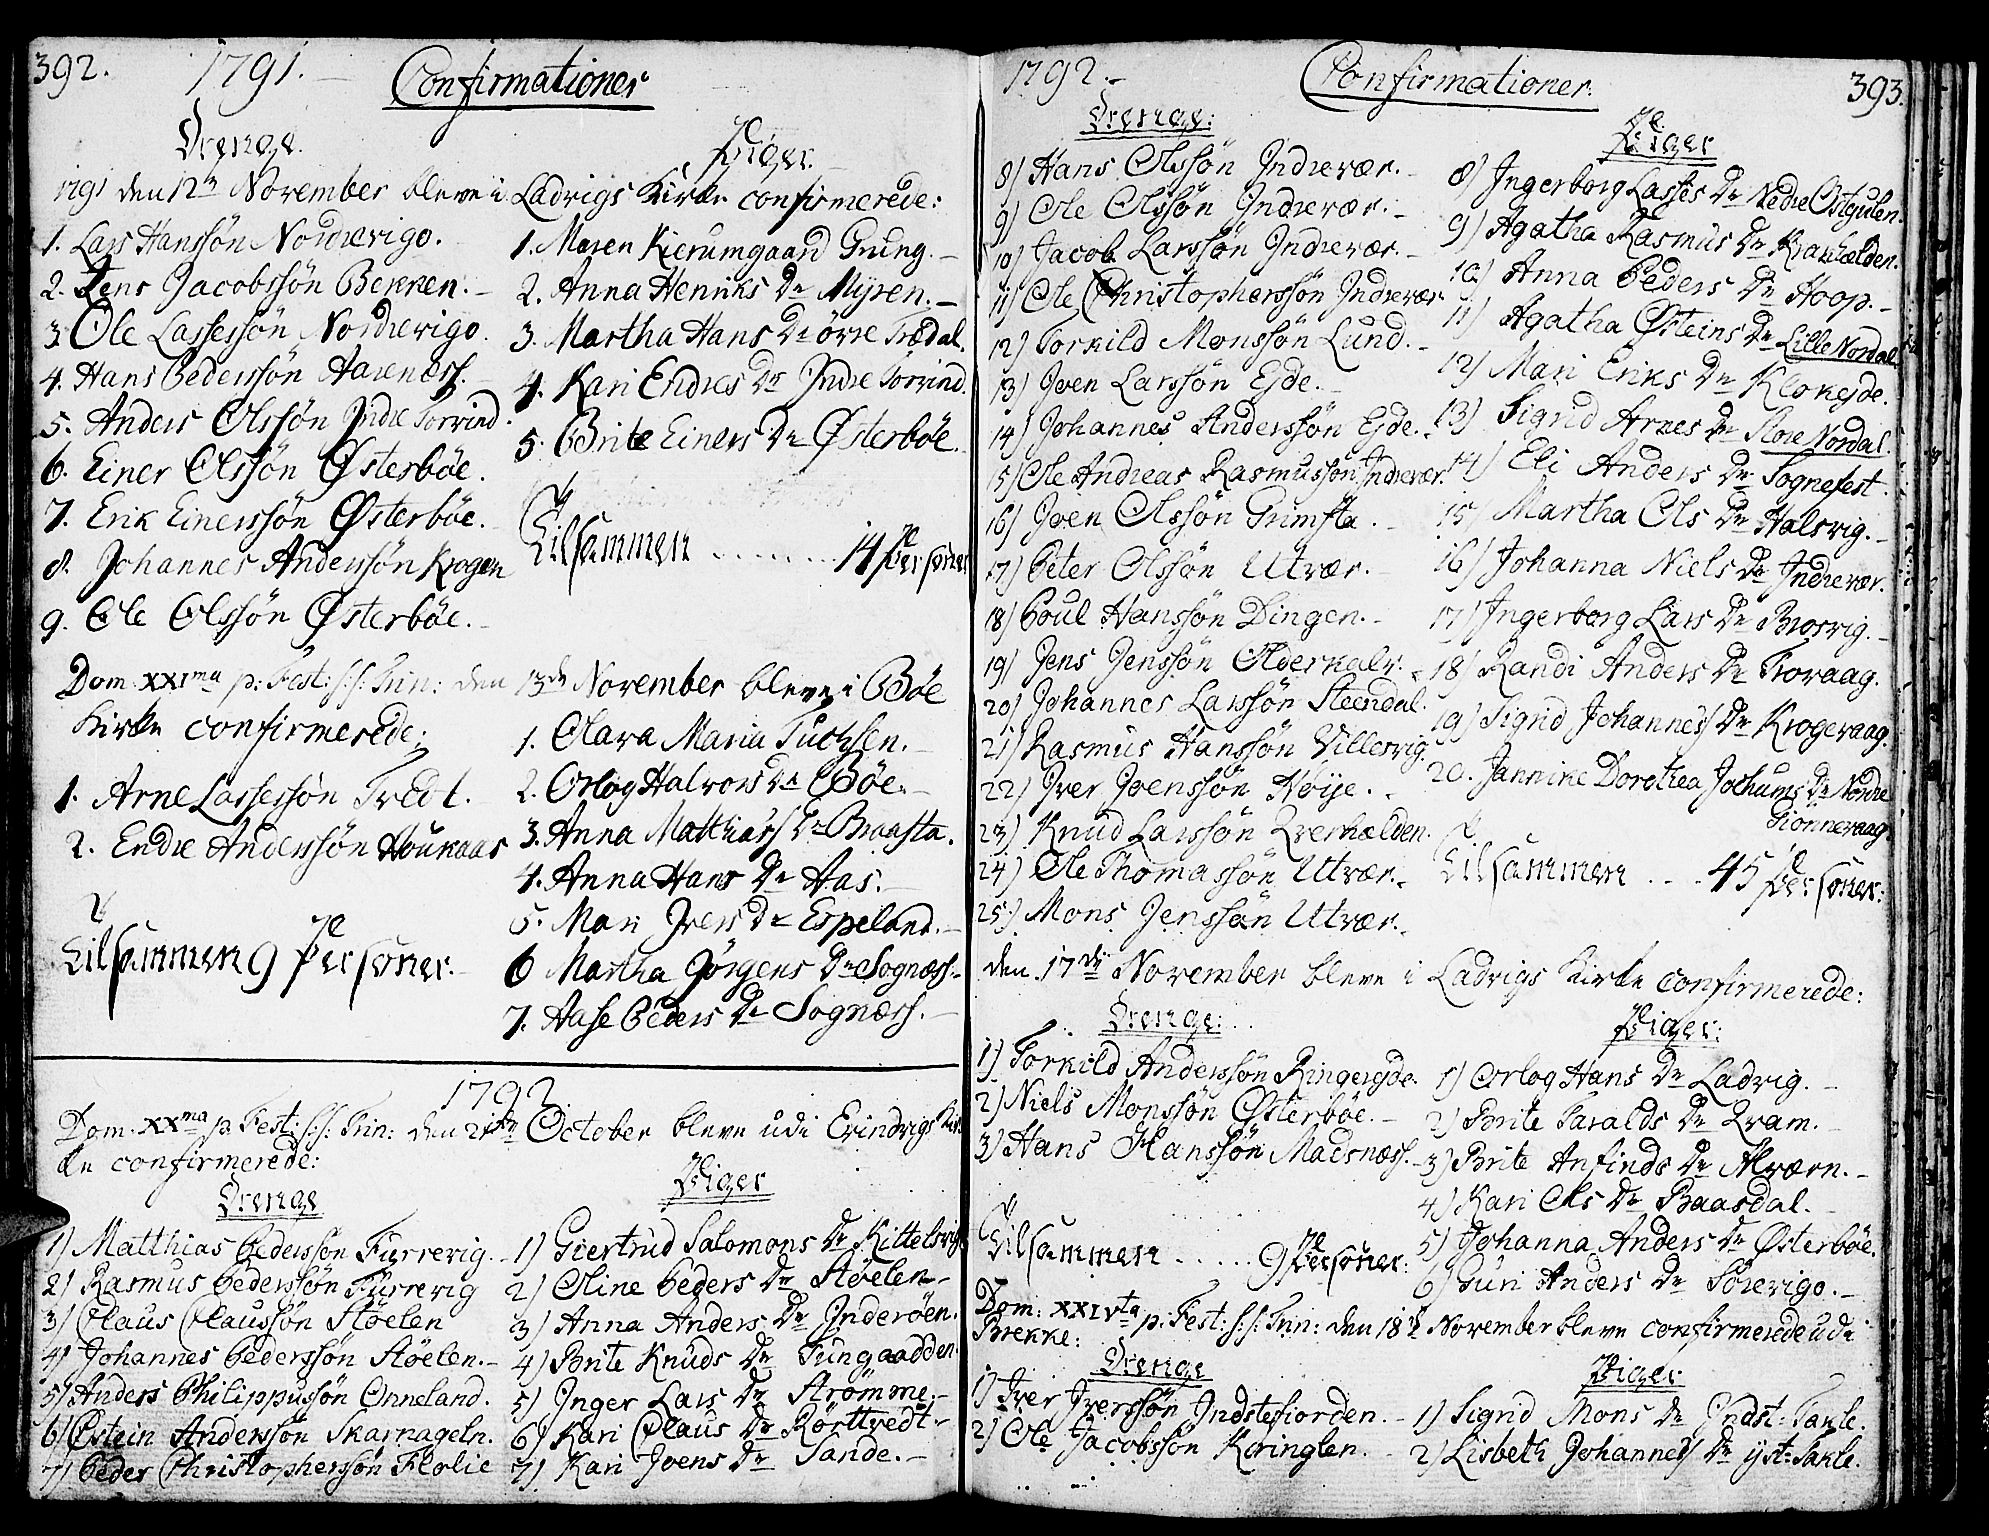 392. 1791. Confirmationer
Drenge. Piger.
1791 den 12te November bleve i Ladvigs Kirke confirmerede:
1. Lars Hanssön Nordrevigo.
2. Jens Jacobssön Bekken.
3 Ole Lassessön Nordrevigo.
4. Hans Pederssön Aarenæss.
5. Anders Olssön Indre Torvind.
6. Einer Olssön Østerböe.
7. Erik Einerssön Østerböe.
8. Johannes Anderssön Krogen
9. Ole Olssön Østerböe.
1. Maren Kierumgaard Grung.
2. Anna Henriks Dr Myren.
3. Martha Hans Dr övre Trædal.
4. Kari Endres Dr Indre Torvind.
5. Brite Einers Dr Østerböe
Tilsammen ....... 14 Personer
Dom. XXIma p: Fest: s:s: Trin: den 13de November bleve i Böe
Kirke confirmerede:
1. Arne Lassessön Tredt.
2. Endre Anderssön Houkaas
Tilsammen 9 Personer.
1. Clara Maria Tuchsen.
2. Orlog Halvors Dr Böe.
3. Anna Matthias Dr Braasta.
4. Anna Hans Dr Aas.
5. Mari Ivers Dr Espeland.
6 Martha Jörgens Dr Sognæss.
7. Aase Peders Dr Sognæss.
1792.
Dom. XXma p. Fest: s:s: Trin: den 21de October bleve udi Evindvigs Kir-
ke confirmerede:
Drenge
1) Matthias Pederssön Furrevig.
2) Rasmus Pederssön Furrevig
3) Claus Claussön Stöelen
4) Johannes Pederssön Stöelen.
5) Anders Philippussön Onneland.
6) Østein Anderssön Skarnageln.
7) Peder Christopherssön Flolie
Piger
1) Giertrud Salomons Dr Kittelsvig
2) Oline Peders Dr Stöelen
3) Anna Anders Dr Inderöen.
4) Brite Knuds Dr Tungaadden.
5) Inger Lars Dr Strömme.
6) Kari Claus Dr Rörttvedt
7) Kari Joens Dr Sande.
1792. Confirmationer. 393.
Drenge:
8) Hans Olssön Indrevær.
9) Ole Olssön Indrevær.
10) Jacob Larssön Indrevær.
11) Ole Christopherssön Indrevær
12) Torkild Monssön Lund.
13) Joen Larssön Ejde.
14) Johannes Anderssön Ejde.
15) Ole Andreas Rasmussön Indrevær.
16) Joen Olssön Grimsta.
17) Peter Olssön Utvær.
18) Poul Hanssön Dingen.
19) Jens Jenssön Olderkalv.
20) Johannes Larssön Steendal.
21) Rasmus Hanssön Villesvig.
22) Iver Joenssön Höije.
23) Knud Larssön Qverhælden.
24) Ole Thomassön Utvær.
25.) Mons Jenssön Utvær.
Piger
8) Ingerborg Lasses Dr Nedre Ostgulen.
9) Agatha Rasmus Dr Krakhælden.
10) Anna Peders Dr Hoop.
11) Agatha Østeins Dr Lille Nordal.
12) Mari Eriks Dr Klokejde.
13) Sigrid Arnes Dr Store Nordal.
14) Eli Anders Dr Sognefest.
15) Martha Ols Dr Halsvig.
16) Johanna Niels Dr Indrevær.
17) Ingerborg Lars Dr Brosvig.
18) Randi Anders Dr Troraag.
19) Sigrid Johannes Dr Krogeraag.
20. Jannike Dorothea Jochums Dr Nordre
Gionneraag
Tilsammen ... 45 Personer.
den 17de November bleve i Ladvigs Kirke confirmerede:
Drenge:
1) Torkild Anderssön Ringerejde.
2) Niels Monssön Østerböe.
3) Hans Hanssön Madsnæss.
Tilsammen ..... 9 Personer.
Piger:
1) Orlog Hans Dr Ladvig.
2) Brite Taralds Dr Qvam.
3) Brite Anfinds Dr Akværn.
4) Kari Ols Dr Baasdal.
5) Johanna Anders Dr Østerböe.
6) Guri Anders Dr Sörevigo.
Dom: XXIVta p: Fest: s:s: Trin: den 18de November bleve confirmerede udi
Brekke:
Drenge
1) Iver Iverssön Indstefiorden.
2) Ole Jacobssön Kringlen.
Piger
1) Sigrid Mons Dr Yndst: Takle.
2) Lisbeth Johannes Dr yst: Takle.